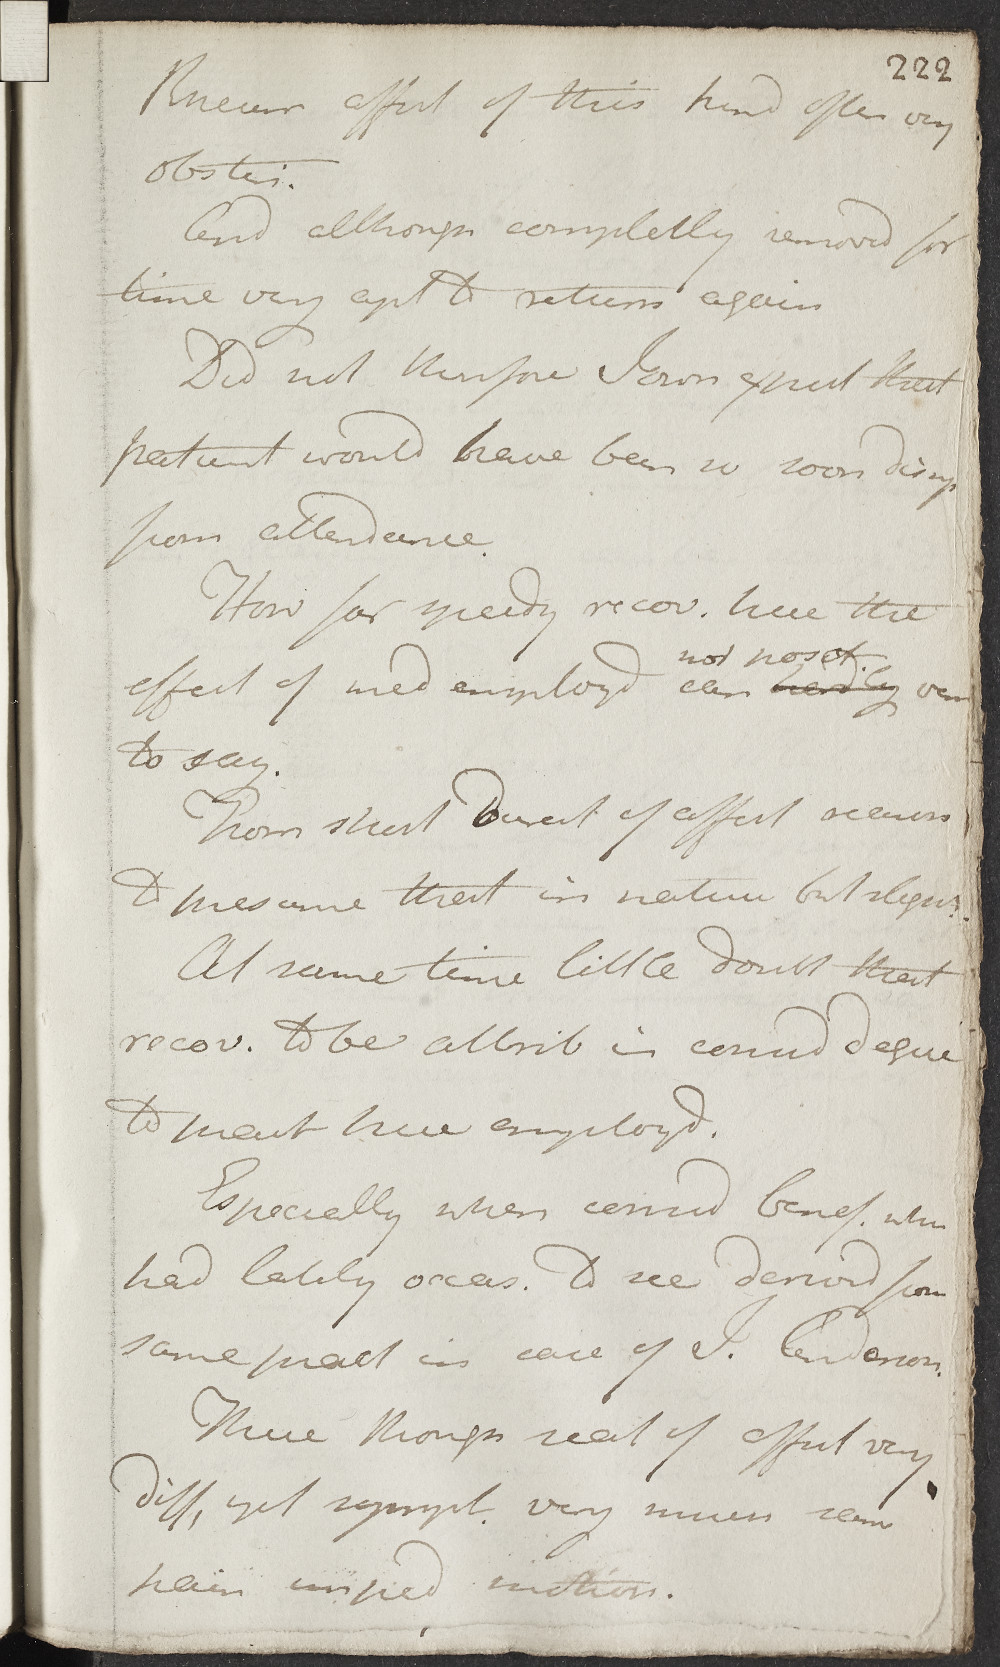 222
Rheum affect of this kind often very
obstin.
And although completly removed for
time very apt to return again
Did not therefore I own expect that
patient would have been so soon dismp
from attendance.
How far speedy recov. here the
not posit.
effect of med employd can hardly ven
to say.
From short Durat of affect reason
to presume that in nature but slight.
At same time little doubt that
recov. to be attrib in consid degree
to pract here employd.
Especially when consid benef. whn
had lately occas. to see derived from
same pract in case of J. Anderson.
There though seat of affect very
diff, yet sympt. very much same
pain imped motion.